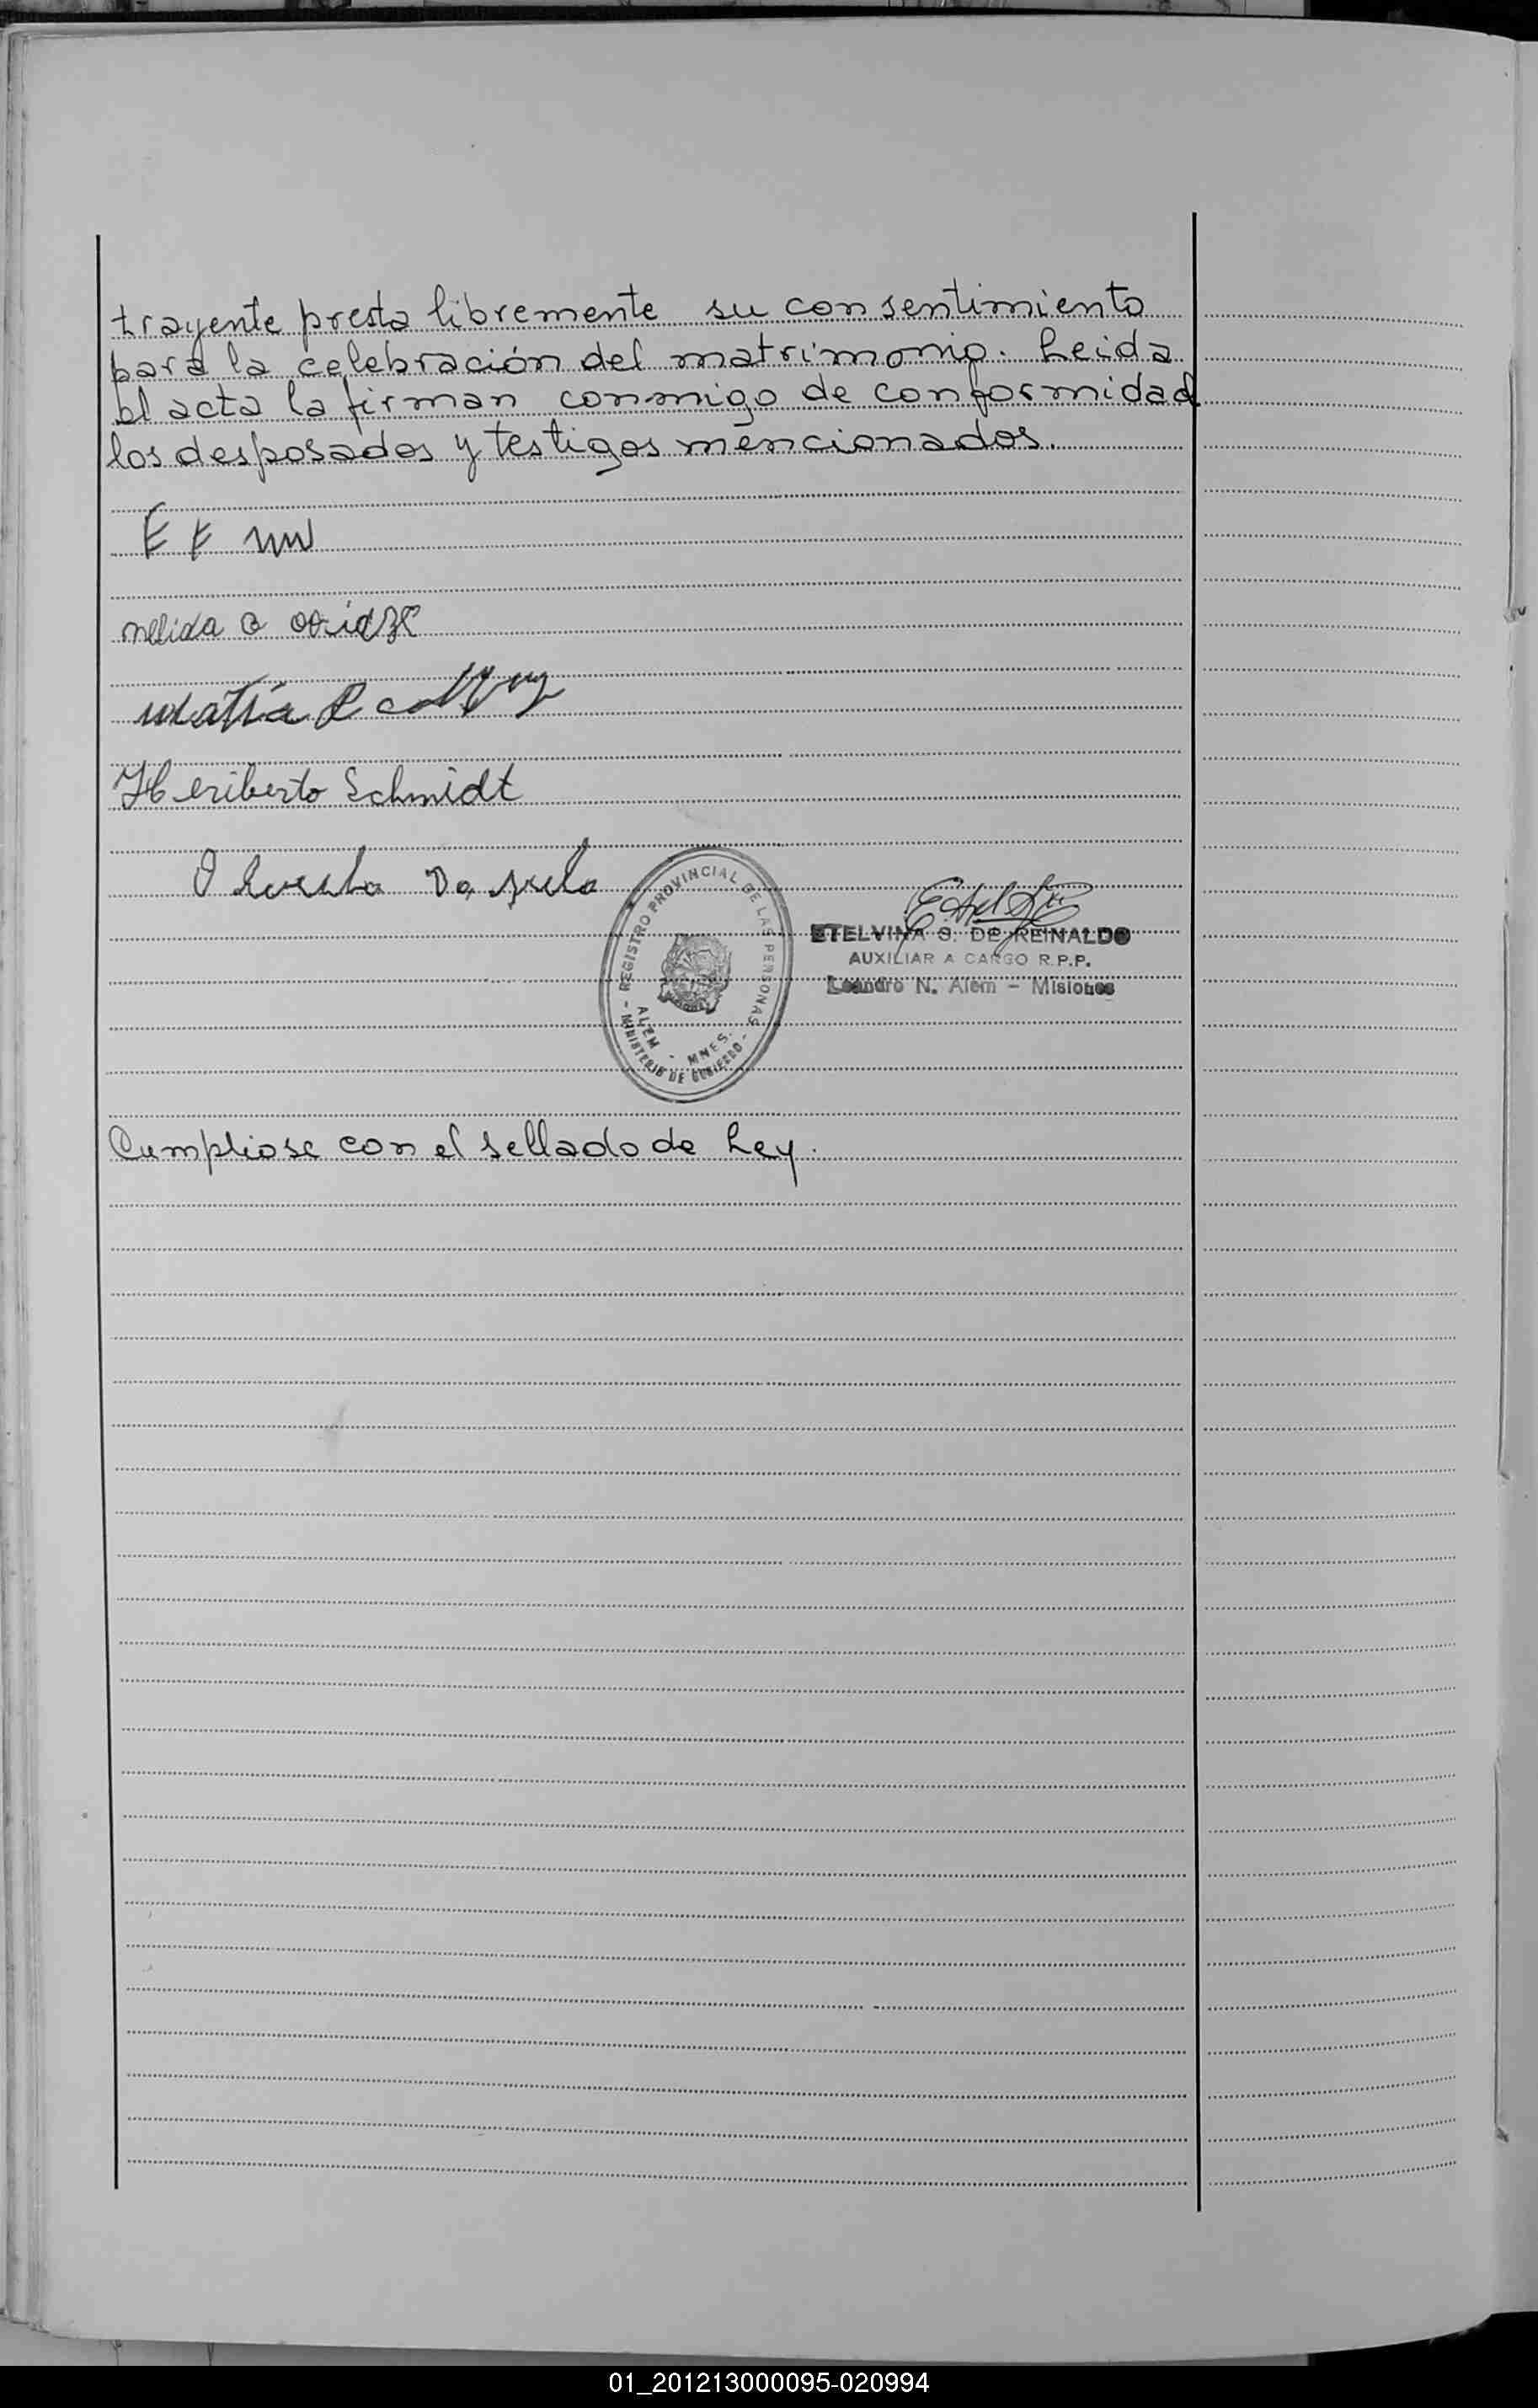 trayente presta libremente su consentimiento
para la celebración del matrimonio. Leida
el acta la firman conmigo de conformidad
los desposados y testigos mencionados.
E E
nelida
Heriberto Schmidt
REGISTRO PROVINCIAL DE LAS PERSONAS
ALEM - MNES.
- MINISTERIO DE GOBIERNO -
ETELVINA S. DE REINALDO
AUXILIAR A CARGO R.P.P.
Leandro N. Alem - Misiones
Cumpliose con el sellado de Ley.
01_201213000095-020994